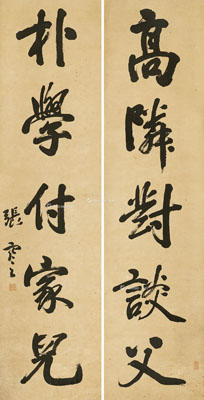 高隣對談父
朴學付家兒
張霔